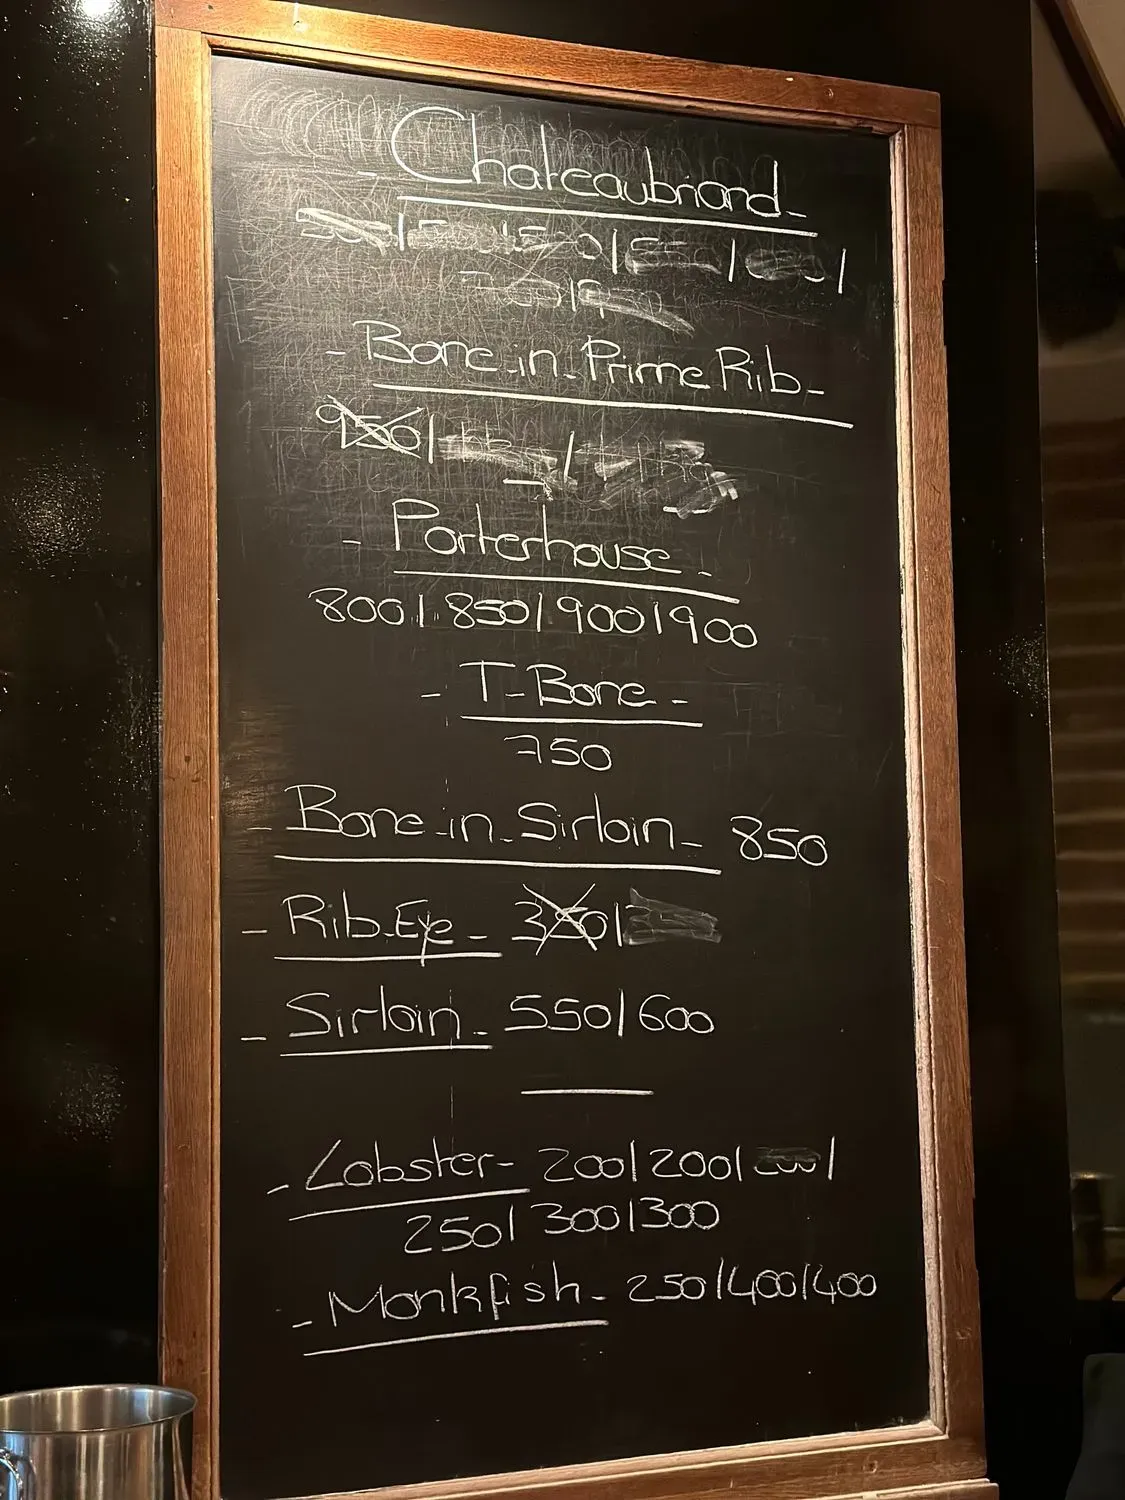 - Chateaubriand -
- Bone-in-Prime Rib -
950 |
- Porterhouse -
800 | 850 | 900 | 900
- T-Bone -
750
- Bone-in-Sirloin - 850
- Rib-Eye - 350 |
- Sirloin - 550 | 600
- Lobster - 200 | 200 |
250 | 300 | 300
- Monkfish - 250 | 400 | 400